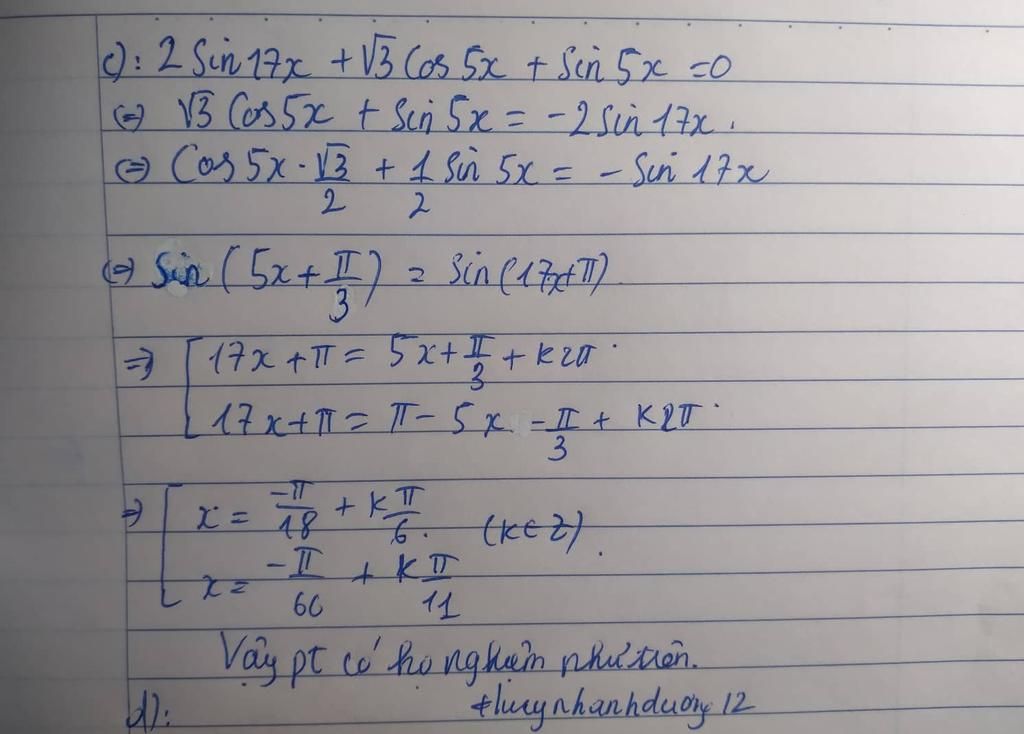 c): 2 Sin 17x + √3 Cos 5x + Sin 5x = 0
(=) √3 Cos 5x + Sin 5x = -2 Sin 17x.
(=) Cos 5x . √3/2 + 1/2 Sin 5x = - Sin 17x
(=) Sin (5x + π/3) = Sin (17x+π)
=> [ 17x + π = 5x + π/3 + k2π
17x + π = π - 5x - π/3 + k2π
=> [ x = -π/18 + kπ/6. (k ∈ Z).
x = -π/66 + kπ/11
Vậy pt có họ nghiệm như trên.
d): thuynhanhduong12